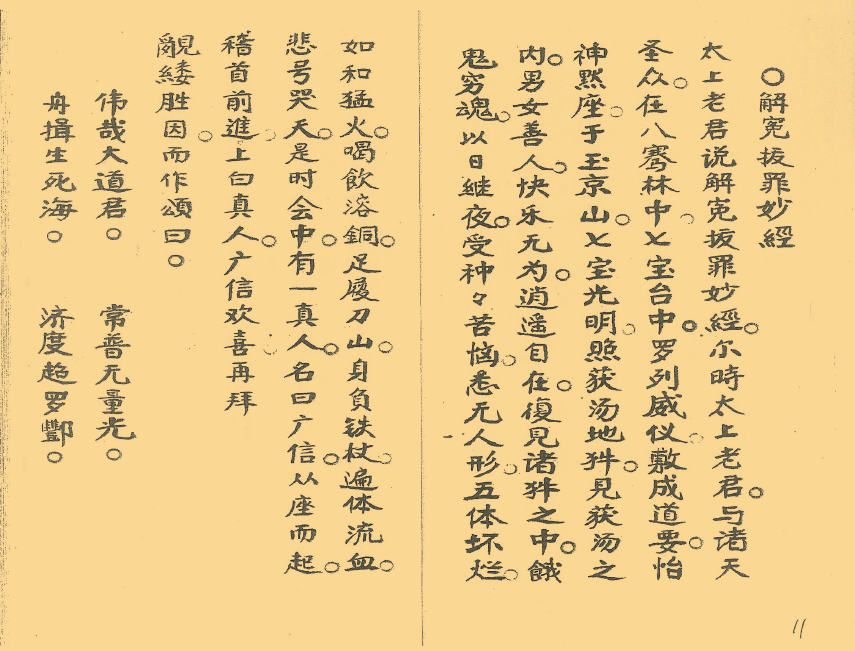 ○解冤拔罪妙經
太上老君说解冤拔罪妙經○尔時太上老君○与诸天
圣众○在八骞林中○七宝台中○罗列威仪○敷成道要○怡
神黙座○于玉京山○七宝光明○照获汤地㹥○見获汤之
内○男女善人○快乐无为○逍遥自在○復見诸㹥之中○餓
鬼穷魂○以日继夜○受种々苦恼○悉无人形○五体坏烂○
如和猛火○喝飲溶銅○足履刀山○身負铁杖○遍体流血○
悲号哭天○是时会中○有一真人○名曰广信○从座而起○
稽首前進○上白真人○广信欢喜○再拜
覶縷胜因○而作頌曰○
伟哉大道君○ 常普无量光○
舟揖生死海○ 济度趋罗酆○
11